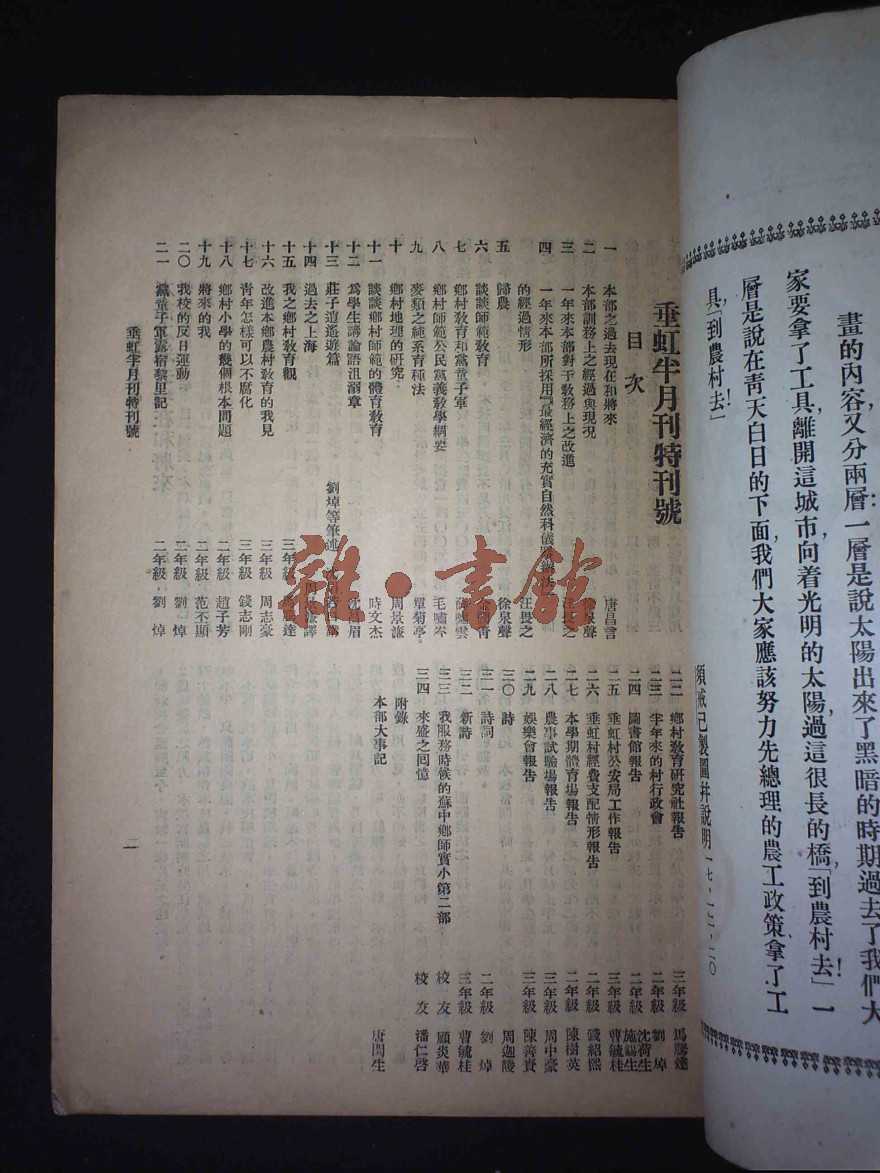 畫的內容，又分兩層：一層是說太陽出來了黑暗的時期過去了我們大
家要拿了工具離開這城市向着光明的太陽過這很長的橋「到農村去！」一
層是說在青天白日的下面，我們大家應該努力先總理的農工政策拿了工
具「到農村去！」
須戒己製圖并說明一七·一二·二〇
垂虹半月刊特刊號
目次
一 本部之過去現在和將來 唐昌言
二 本部訓務上之經過與現况 徐泉聲
三 一年來本部對于敎務上之改進 汪畏之
四 一年來本部所採用「最經濟的充實自然科儀器辦法」
的經過情形 汪畏之
五 歸農 徐泉聲
六 談談師範敎育
七 鄉村敎育和黨童子軍
八 鄉村師範公民黨義敎學綱要 毛嘯岑
九 麥類之純系育種法 單菊亭
十 鄉村地理的研究 周景濂
十一 談談鄉村師範的體育敎育 時文杰
十二 爲學生講論語沮溺章 沈昌眉
十三 莊子逍遙遊篇 劉焯等筆述
十四 過去之上海
十五 我之鄉村敎育觀 三年級 馬騰達
十六 改進本鄉農村敎育的我見 三年級 周志豪
十七 靑年怎樣可以不腐化 三年級 錢志剛
十八 鄉村小學的幾個根本問題 二年級 趙子芳
十九 將來的我 二年級 范丕顯
二〇 我校的反日運動 二年級 劉焯
二一 黨童子軍露宿黎里記 二年級 劉焯
二二 鄉村敎育研究社報告 三年級 馬騰達
二三 半年來的村行政會 二年級 劉焯
二四 圖書館報告 二年級 沈荷生 施錫生
二五 垂虹村公安局工作報告 三年級 曹毓桂
二六 垂虹村經費支配情形報告 二年級 錢紹熙
二七 本學期體育場報告 二年級 陳樹英
二八 農事試驗場報告 三年級 周中豪
二九 娛樂會報告 三年級 陳善賓
三〇 詩 周迦陵
三一 詩詞 二年級 劉焯
三二 新詩 三年級 曹毓桂
三三 我服務時候的蘇中鄉師實小第二部 校友 顧炎華
三四 來盛之回憶 校友 潘仁啓
附錄
本部大事記 唐閏生
垂虹半月刊特刊號
一
雜·書館